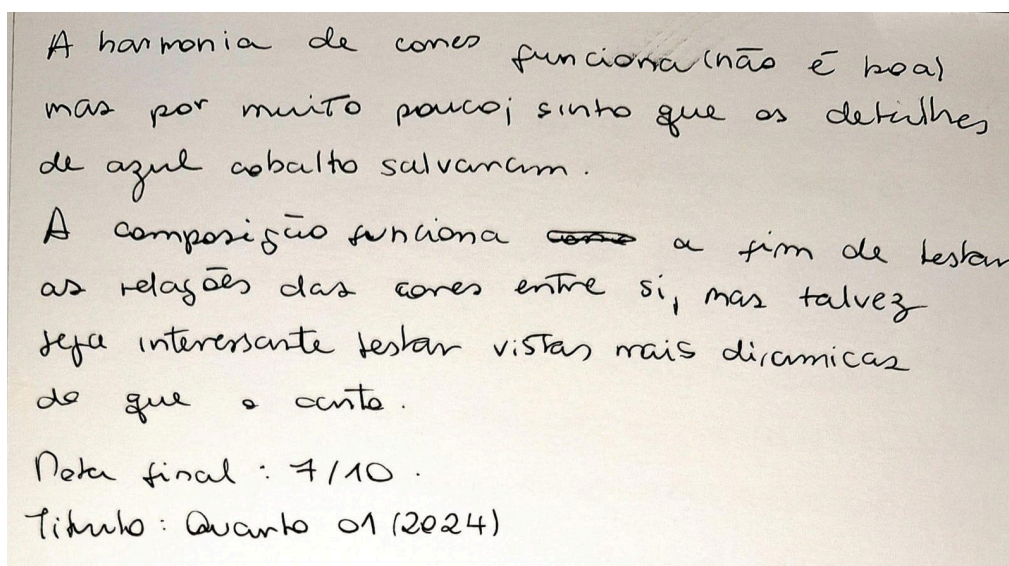 A harmonia de cores funciona (não é boa)
mas por muito pouco; sinto que os detalhes
de azul cobalto salvaram.
A composição funciona a fim de testar
as relações das cores entre si, mas talvez
seja interessante testar vistas mais dinamicas
do que o canto.
Nota final: 7/10.
Título: Quarto 01 (2024)